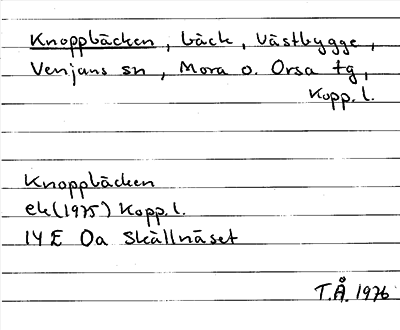 Knoppbäcken, bäck, Västbygge,
Venjans sn, Mora o. Orsa tg,
Kopp. l.
Knoppbäcken
ek (1975) Kopp. l.
14 E 0a Skällnäset
T.Å. 1976